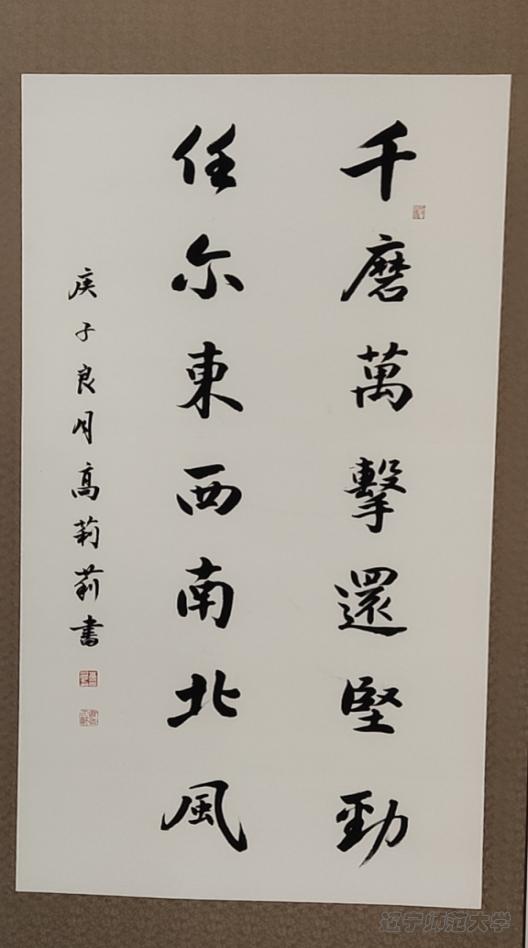 千磨萬擊還堅勁
任尔東西南北風
庚子良月高莉莉書
辽宁师范大学